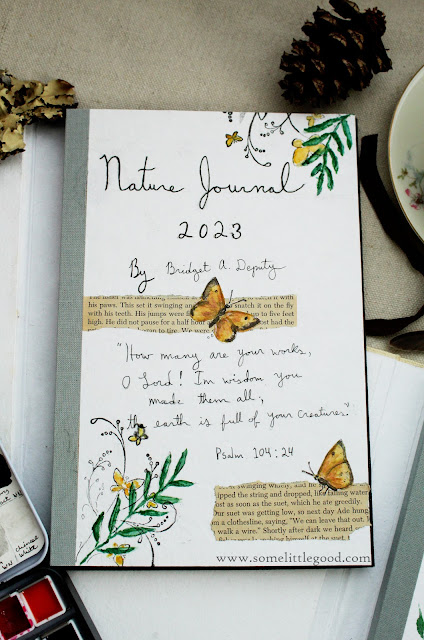 Nature Journal
2023
By Bridget A. Deputy
with
his paws. This set it swinging and snatch it on the fly
with his teeth. His jumps were up to five feet
high. He did not pause for a half hour had the
to tire. We were
"How many are your works,
O Lord! In wisdom you
made them all;
the earth is full of your creatures."
Psalm 104:24
swinging wildly, and he
ipped the string and dropped, like falling water
ust as soon as the suet, which he ate greedily.
Our suet was getting low, so next day Ade hung
m a clothesline, saying, "We can leave that out.
walk a wire." Shortly after dark we heard
making himself at the
www.somelittlegood.com
chinese
WN / White